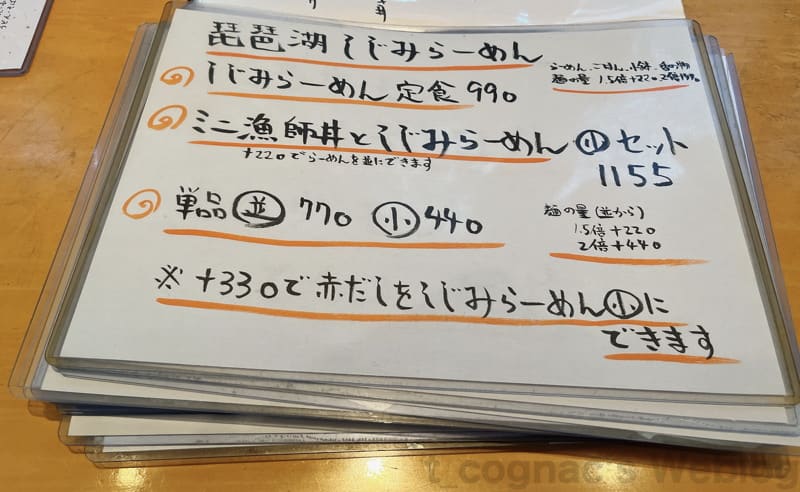 琵琶湖 しじみらーめん
しじみらーめん 定食 990
らーめん、ごはん、小鉢、香の物
麺の量 1.5倍+220 2倍
ミニ漁師丼としじみらーめん 小 セット
+220でらーめんを並にできます
1155
単品 並 770 小 440
麺の量(並から)
1.5倍+220
2倍+440
※ +330で赤だしをしじみらーめん小に
できます
t_cognac's Weblog